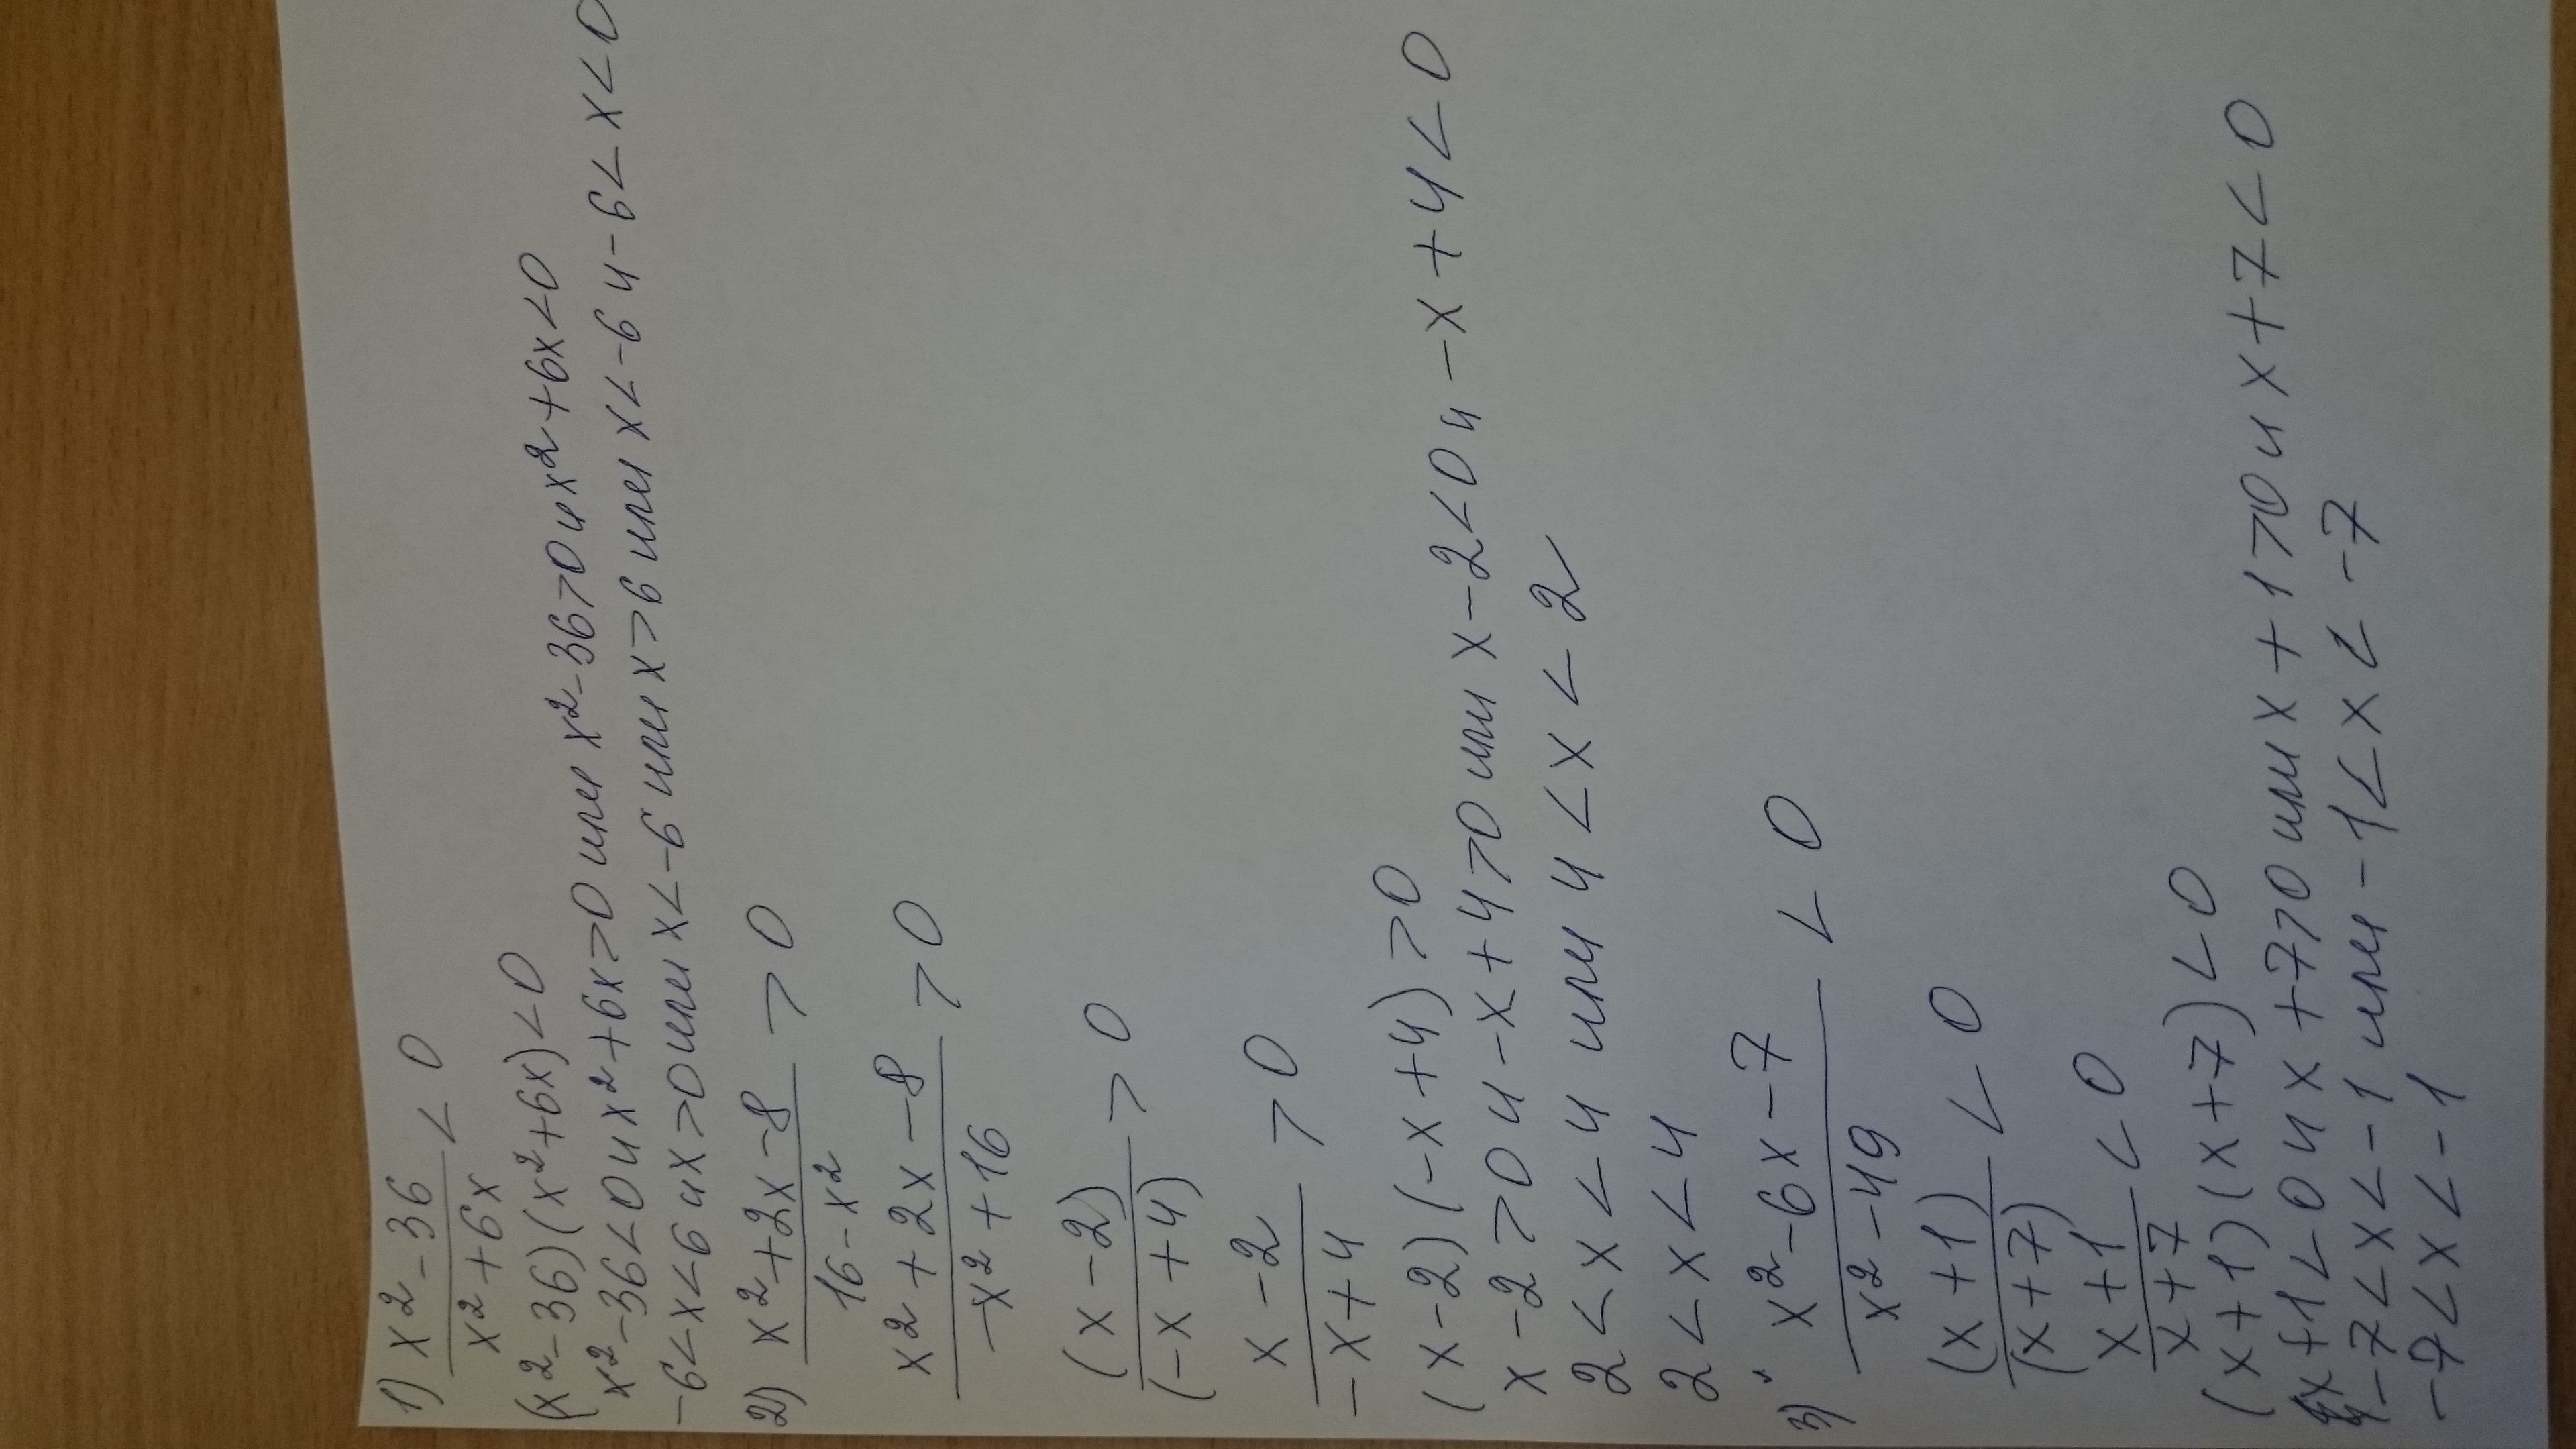 1) x² - 36 / x² + 6x < 0
(x² - 36)(x² + 6x) < 0
x² - 36 < 0 и x² + 6x > 0 или x² - 36 > 0 и x² + 6x < 0
-6 < x < 6 и x > 0 или x < -6 или x > 6 или x < -6 и -6 < x < 0
2) x² + 2x - 8 / 16 - x² > 0
x² + 2x - 8 / -x² + 16 > 0
(x - 2) / (-x + 4) > 0
x - 2 / -x + 4 > 0
(x - 2)(-x + 4) > 0
x - 2 > 0 и -x + 4 > 0 или x - 2 < 0 и -x + 4 < 0
2 < x < 4 или 4 < x < 2
2 < x < 4
3) x² - 6x - 7 / x² - 49 < 0
(x + 1) / (x + 7) < 0
x + 1 / x + 7 < 0
(x + 1)(x + 7) < 0
x + 1 < 0 и x + 7 > 0 или x + 1 > 0 и x + 7 < 0
-7 < x < -1 или -1 < x < -7
-7 < x < -1